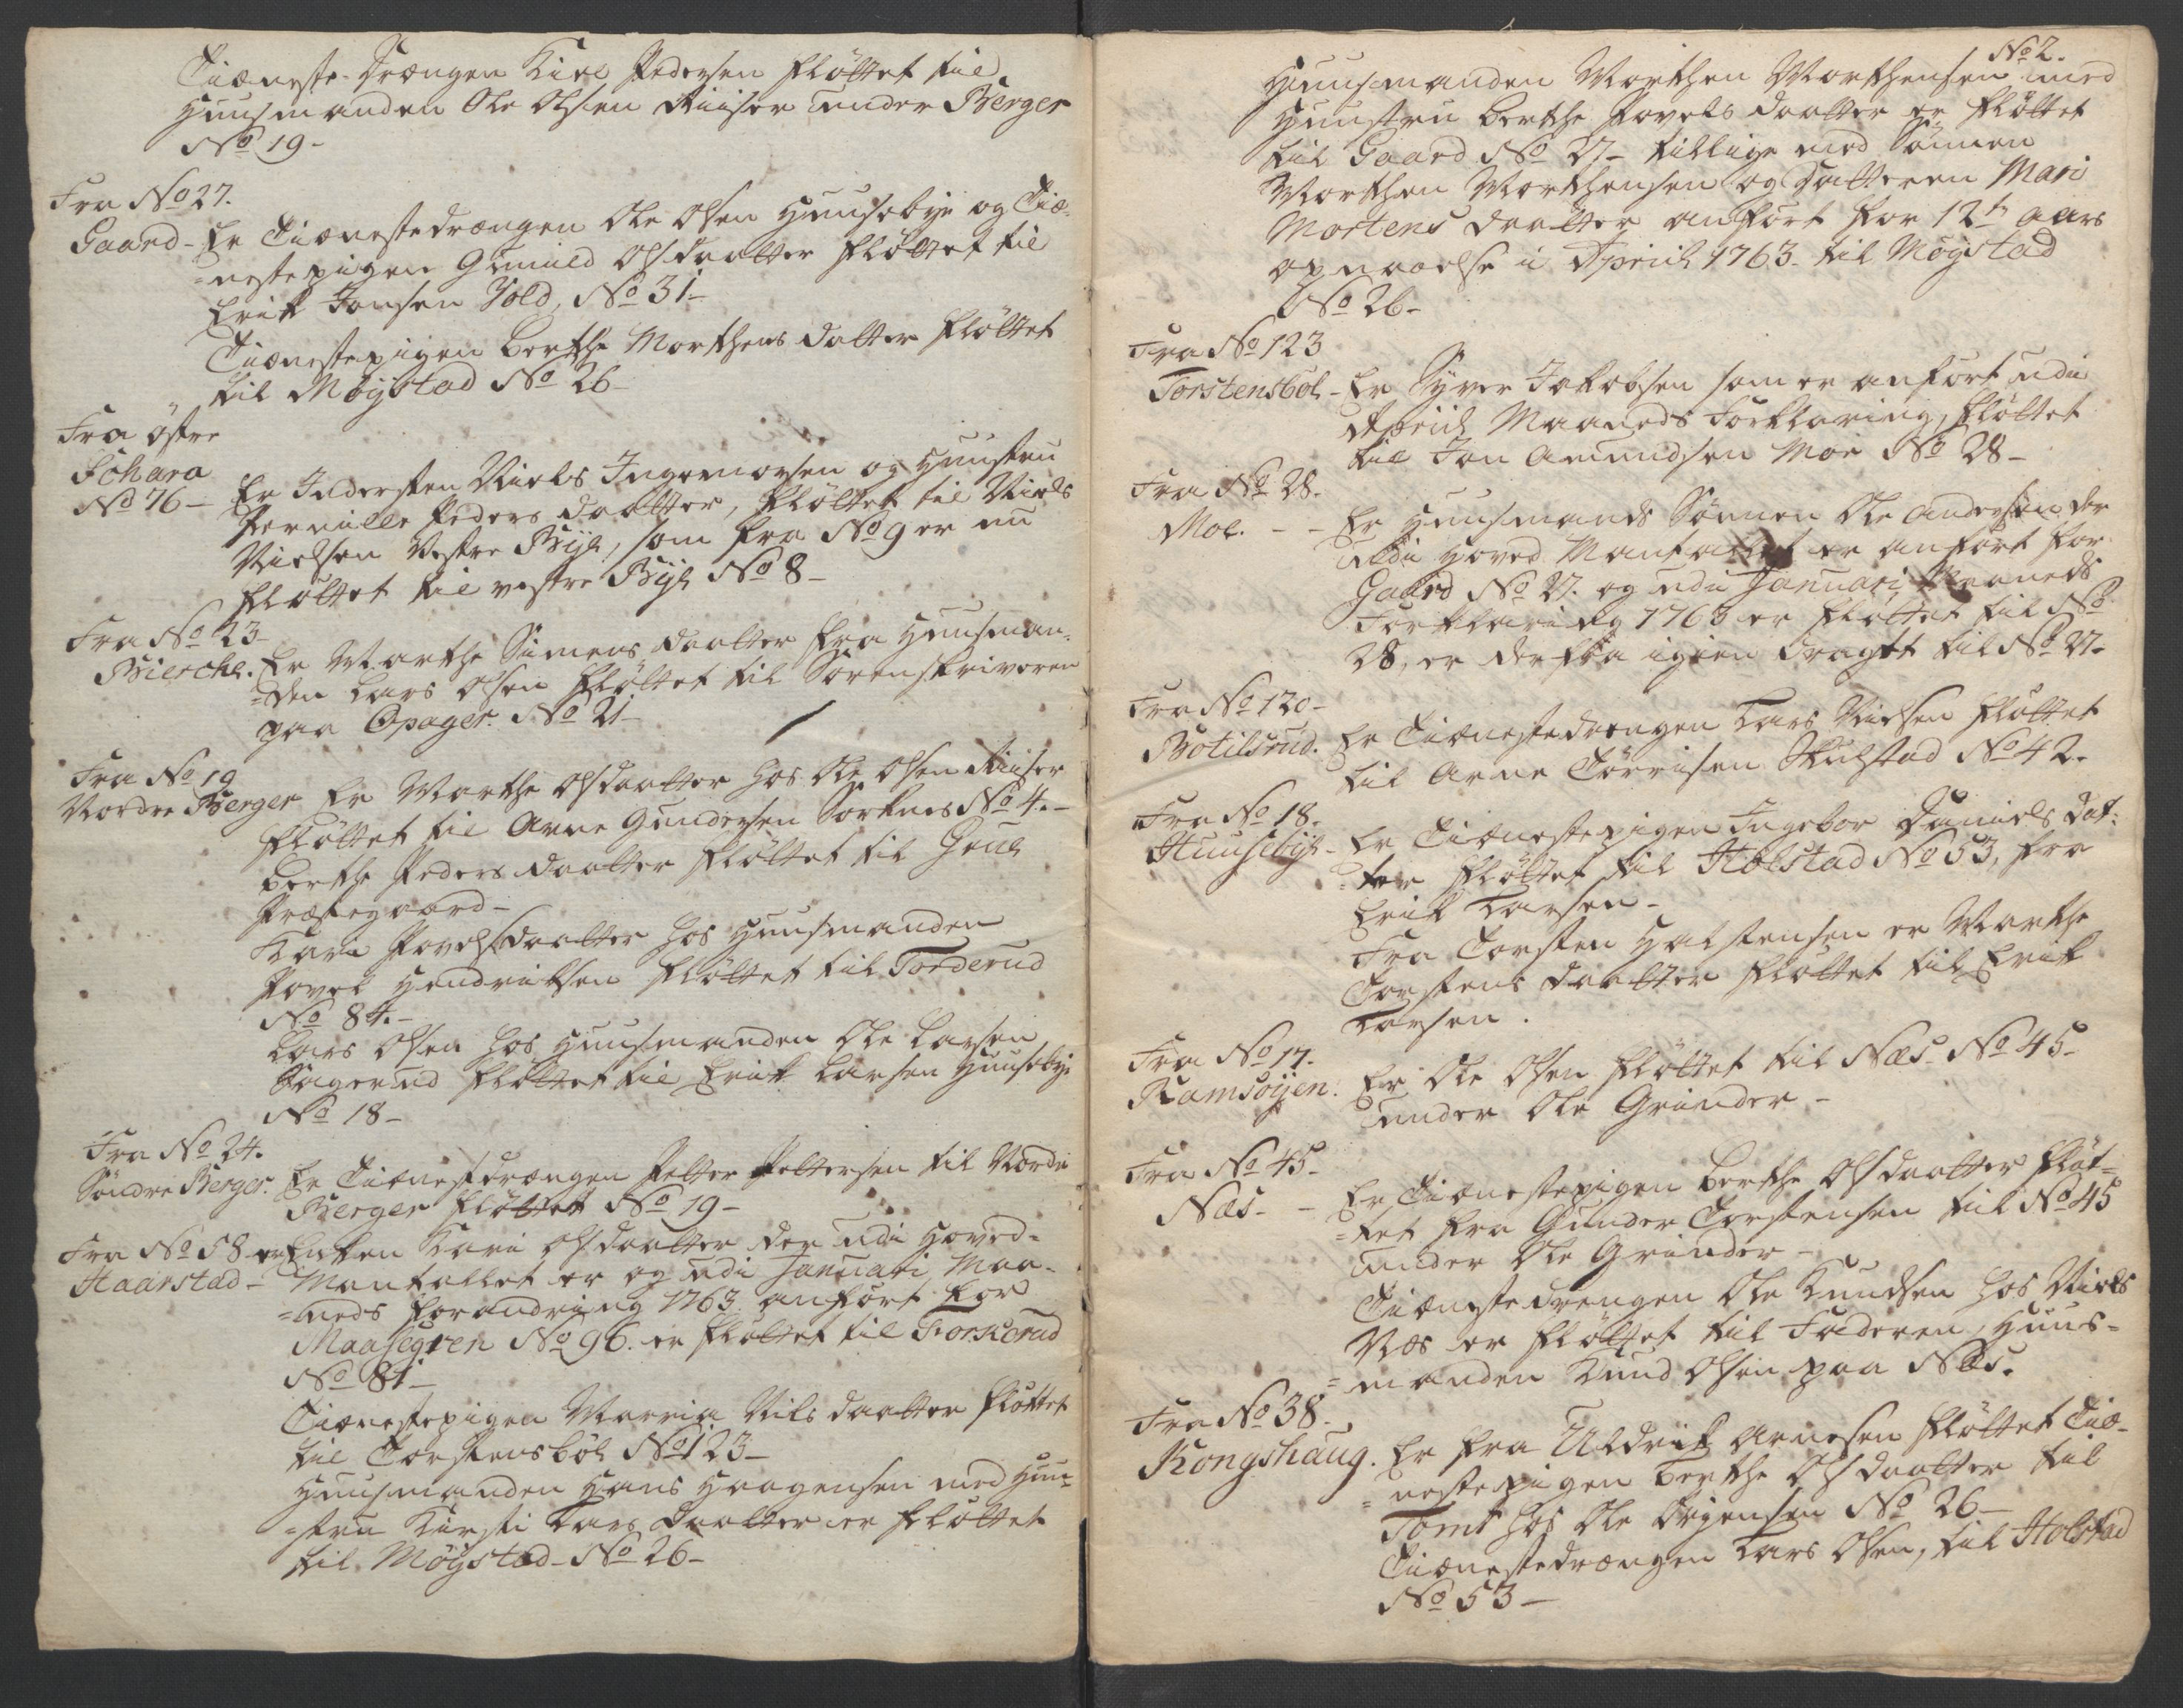 Tiæneste-Drængen Kiel Pedersen fløttet til
Huusmanden Ole Olsen Kiiser under Berger
No 19-
Fra No 27.
Gaard - Er Tiænestedrængen Ole Olsen Huusebye og Tiæ-
=nestepigen Gunild Olsdaatter fløttet til
Erik Jonsen Jold, No 31-
Tiænestepigen Berthe Morthens datter fløttet
til Möystad No 26-
Fra östre
Föhara
No 76- Er Indersten Niels Ingemorsen og Huustru
Pernille Peders daatter, fløttet til Niels
Nielsen Vestre Bÿe, som fra No 9 er nu
fløttet til vestre Bÿe No 8-
Fra No 23-
Bierche. Er Marthe Simens daatter fra Huusman-
=den Lars Olsen fløttet til Sorenskriveren
paa Opager. No 21-
Fra No 19
Nordre Berger Er Marthe Olsdaatter hos Ole Olsen Kiiser
fløttet til Arne Gundersen Sörknes No 4.-
Berthe Peders daatter fløttet til Grue
Præstegaard-
Kari Povelsdaatter hos Huusmanden
Povel Hendriksen fløttet til Torderud
No 84.-
Lars Olsen hos Huusmanden Ole Larsen
Sagerud fløttet til Erik Larsen Huusebye
No 18-
Fra No 24.
Söndre Berger. Er Tiænestdrængen Petter Pettersen til Nordre
Berger fløttet No 19-
Fra No 58 er Enken Kari Olsdaatter der udi Hoved-
Haarstad- Mantallet er og udi Januari Maa-
=neds forandring 1763. anført for
Maasegren No 96. er fløttet til Forkerud
No 81-
Tiænestepigen Marria Nils daatter fløttet
til Torstensböl No 123-
Huusmanden Hans Haagensen med Huu-
=stru Kirsti Lars daatter er fløttet
til Möystad- No 26-
No 2.
Huusmanden Morthen Morthensen med
Huustru Berthe Povels daatter er fløttet
til Gaard No 27- tillige med Sönnen
Morthen Morthensen og Datteren Mari
Mortens daatter anført for 12te aars
opnaaelse i Aprill 1763. til Möystad
No 26-
Fra No 123
Torstensböl- Er Syver Jakobsen som er anført udi
Aprill Maaneds Forklaring, fløttet
til Jon Amundsen Moe No 28-
Fra No 28.
Moe. - - Er Huusmands Sönnen Ole Andersen der
udi Hoved Mantallet er anført for
Gaard No 27. og udi Januari Maaneds
Forklaring 1763 er fløttet til No
28, er derfra igien dragtt til No 27-
Fra No 120-
Botilsrud. Er Tiænestedrengen Lars Nielsen fløttet
til Arne Törrisen Skulstad No 42.
Fra No 18.
Huusebÿe- Er Tiænestepigen Ingebor Daniels Dat-
=ter fløttet til Holstad No 53, fra
Erik Larsen-
Fra Torsten Halstensen er Marthe
Torstens daatter fløttet til Erik
Larsen.
Fra No 17.
Ramsöÿen. Er Ole Olsen fløttet til Næs No 45-
under Ole Grinder-
Fra No 45-
Næs- - Er Tiænestepigen Berthe Olsdaatter fløt-
=tet fra Gunder Torstensen til No 45
under Ole Grinder-
Tiænestedrengen Ole Knudsen hos Niels
Næs er fløttet til Faderen, Huus-
=manden Knud Olsen paa Næs.
Fra No 38-
Kongshaug. Er fra Uldrik Arnesen fløttet Tiæ-
=nestepigen Berthe Olsdaatter til
Tomt hos Ole Örgensen No 26-
Tiænestedrængen Lars Olsen, til Holstad
No 53-